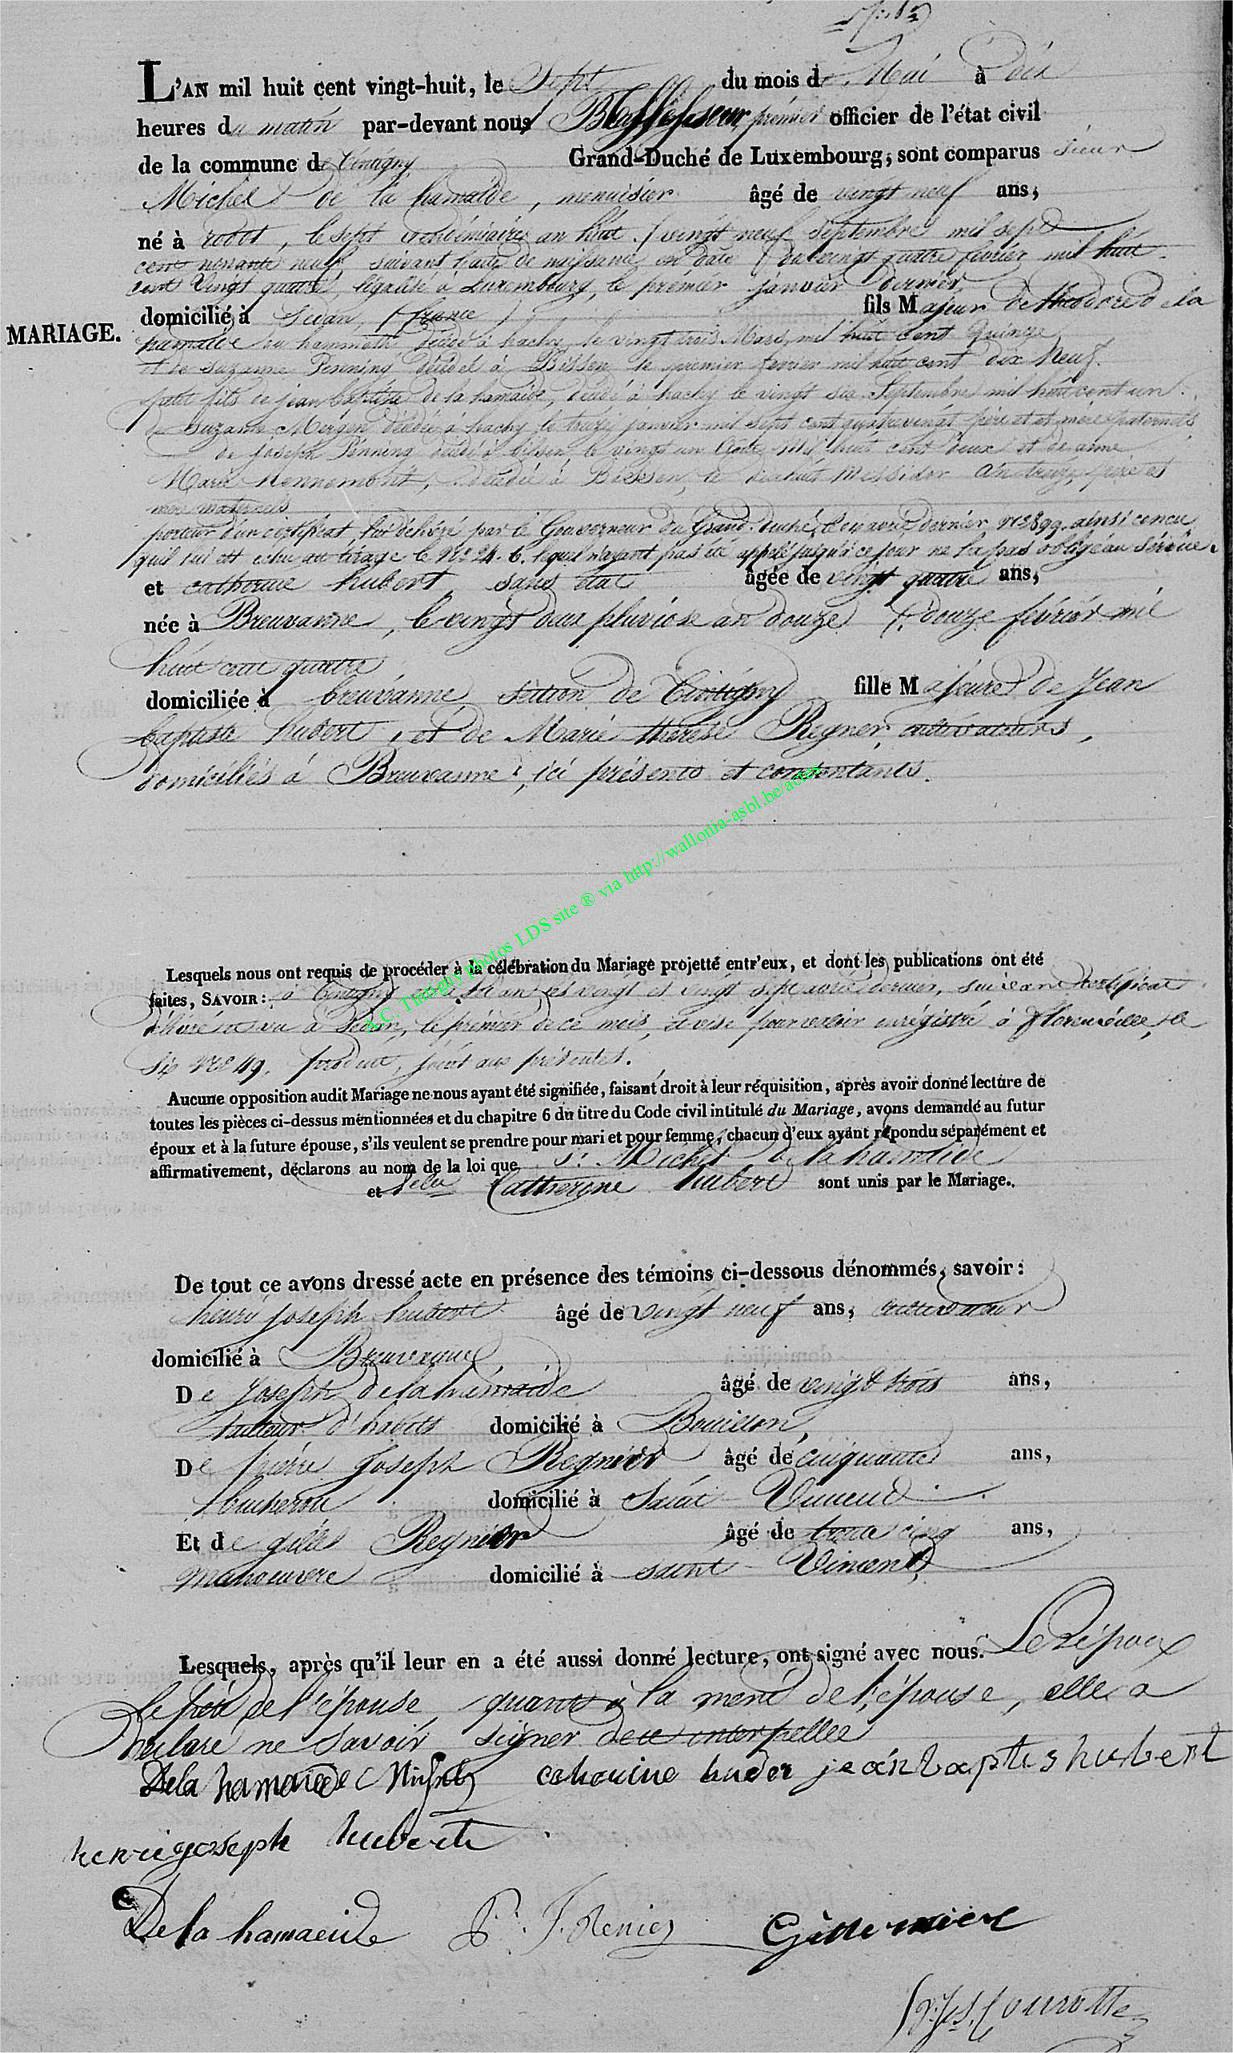 L'AN mil huit cent vingt-huit, le Sept du mois de Mai à dix
heures du matin par-devant nous premier officier de l'état civil
de la commune de Tintigny Grand-Duché de Luxembourg, sont comparus sieur
Michel de la hamaide, menuisier âgé de vingt neuf ans,
né à , le sept vendémiaire an huit (vingt neuf septembre mil sept
cent nonante neuf suivant l'acte de naissance en date du vingt quatre février mil huit
cent vingt quatre, légalisé à Luxembourg, le premier janvier dernier
domicilié à Sedan, (france) fils Majeur de théodore de la
MARIAGE.
hamaide ou hammeide décédé à hachy, le vingt trois Mars, mil huit cent quinze
et de Suzanne Penning décédée à Bissen le premier fevrier mil huit cent dix Neuf.
petit fils de jean baptiste de la hamaide, décédé à hachy le vingt six Septembre mil huit cent un.
de Suzanne Mergen décédée à hachy, le treize janvier mil sept cent quatre vingt père et mère paternels
de joseph Penning décédé à bissen le vingt un Août mil huit cent deux et de anne
Marie Mennemont, décédée à Bissen, le Messidor An treize, père et
mère maternels
porteur d'un certificat, lui délivré par le Gouverneur du Grand-duché, avril dernier, No 899, ainsi concu
qu'il lui est echu au tirage le No 24. B. lequel n'ayant pas été appelé jusqu'à ce jour ne l'a pas obligé au service.
et catherine hubert, sans état âgée de vingt quatre ans,
née à Breuvanne, le vingt deux pluviose an douze (douze février mil
huit cent quatre
domiciliée à breuvanne section de Tintigny fille Majeure de Jean
baptiste hubert, et de Marie thérèse Regner, cultivateurs,
domiciliés à Breuvanne, ici présents et consentants.
A.C. Tintigny photos LDS site ® via http://wallonia-asbl.be/actes
Lesquels nous ont requis de procéder à la célébration du Mariage projetté entr'eux, et dont les publications ont été
faites, SAVOIR: à Tintigny et Sedan les vingt et vingt sept avril dernier, suivant certificat
délivré à Sedan, le premier de ce mois, et visé pour valoir enregistré à florenville, le
Six No 49, produit, joint aux présentes.
Aucune opposition audit Mariage ne nous ayant été signifiée, faisant droit à leur réquisition, après avoir donné lecture de
toutes les pièces ci-dessus mentionnées et du chapitre 6 du titre du Code civil intitulé du Mariage, avons demandé au futur
époux et à la future épouse, s'ils veulent se prendre pour mari et pour femme, chacun d'eux ayant répondu séparément et
affirmativement, déclarons au nom de la loi que Sr Michel de la hamaide
et Catherine hubert sont unis par le Mariage.
De tout ce avons dressé acte en présence des témoins ci-dessous dénommés, savoir:
henri joseph hubert âgé de vingt neuf ans, cultivateur
domicilié à Breuvanne
De Joseph de la hamaide âgé de vingt trois ans,
tailleur d'habits domicilié à Bouillon
De pierre Joseph Regnier âgé de cinquante ans,
bucheron domicilié à Saint Vincent
Et de gilles Regnier âgé de trente cinq ans,
manoeuvre domicilié à saint Vincent
Lesquels, après qu'il leur en a été aussi donné lecture, ont signé avec nous. Les époux
le père de l'épouse, quant à la mère de l'épouse, elle a
déclaré ne savoir signer de ce interpellée
De la hamaide Michel catherine huber jean baptis hubert
henri joseph hubert
De la hamaeide P. J. Renier Gille renier